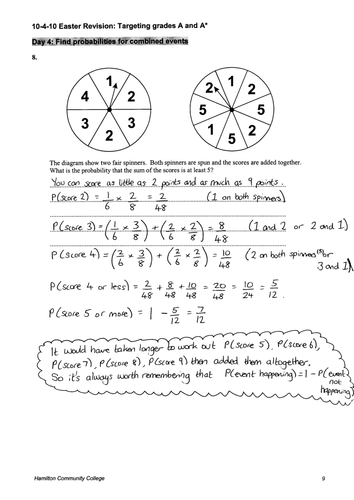 10-4-10 Easter Revision: Targeting grades A and A*
Day 4: Find probabilities for combined events
8.
1
4 2
3 3
2
1
2 2
5 5
1 2
5
The diagram show two fair spinners. Both spinners are spun and the scores are added together.
What is the probability that the sum of the scores is at least 5?
You can score as little as 2 points and as much as 9 points.
P(score 2) = 1/6 × 2/8 = 2/48 (1 on both spinners)
P(score 3) = (1/6 × 3/8) + (2/6 × 2/8) = 8/48 (1 and 2 or 2 and 1)
P(score 4) = (2/6 × 3/8) + (2/6 × 2/8) = 10/48 (2 on both spinners or
3 and 1)
P(score 4 or less) = 2/48 + 8/48 + 10/48 = 20/48 = 10/24 = 5/12.
P(score 5 or more) = 1 - 5/12 = 7/12
It would have taken longer to work out P(score 5), P(score 6),
P(score 7), P(score 8), P(score 9) then added them altogether.
So it's always worth remembering that P(event happening) = 1 - P(event
not
happening)
Hamilton Community College 9